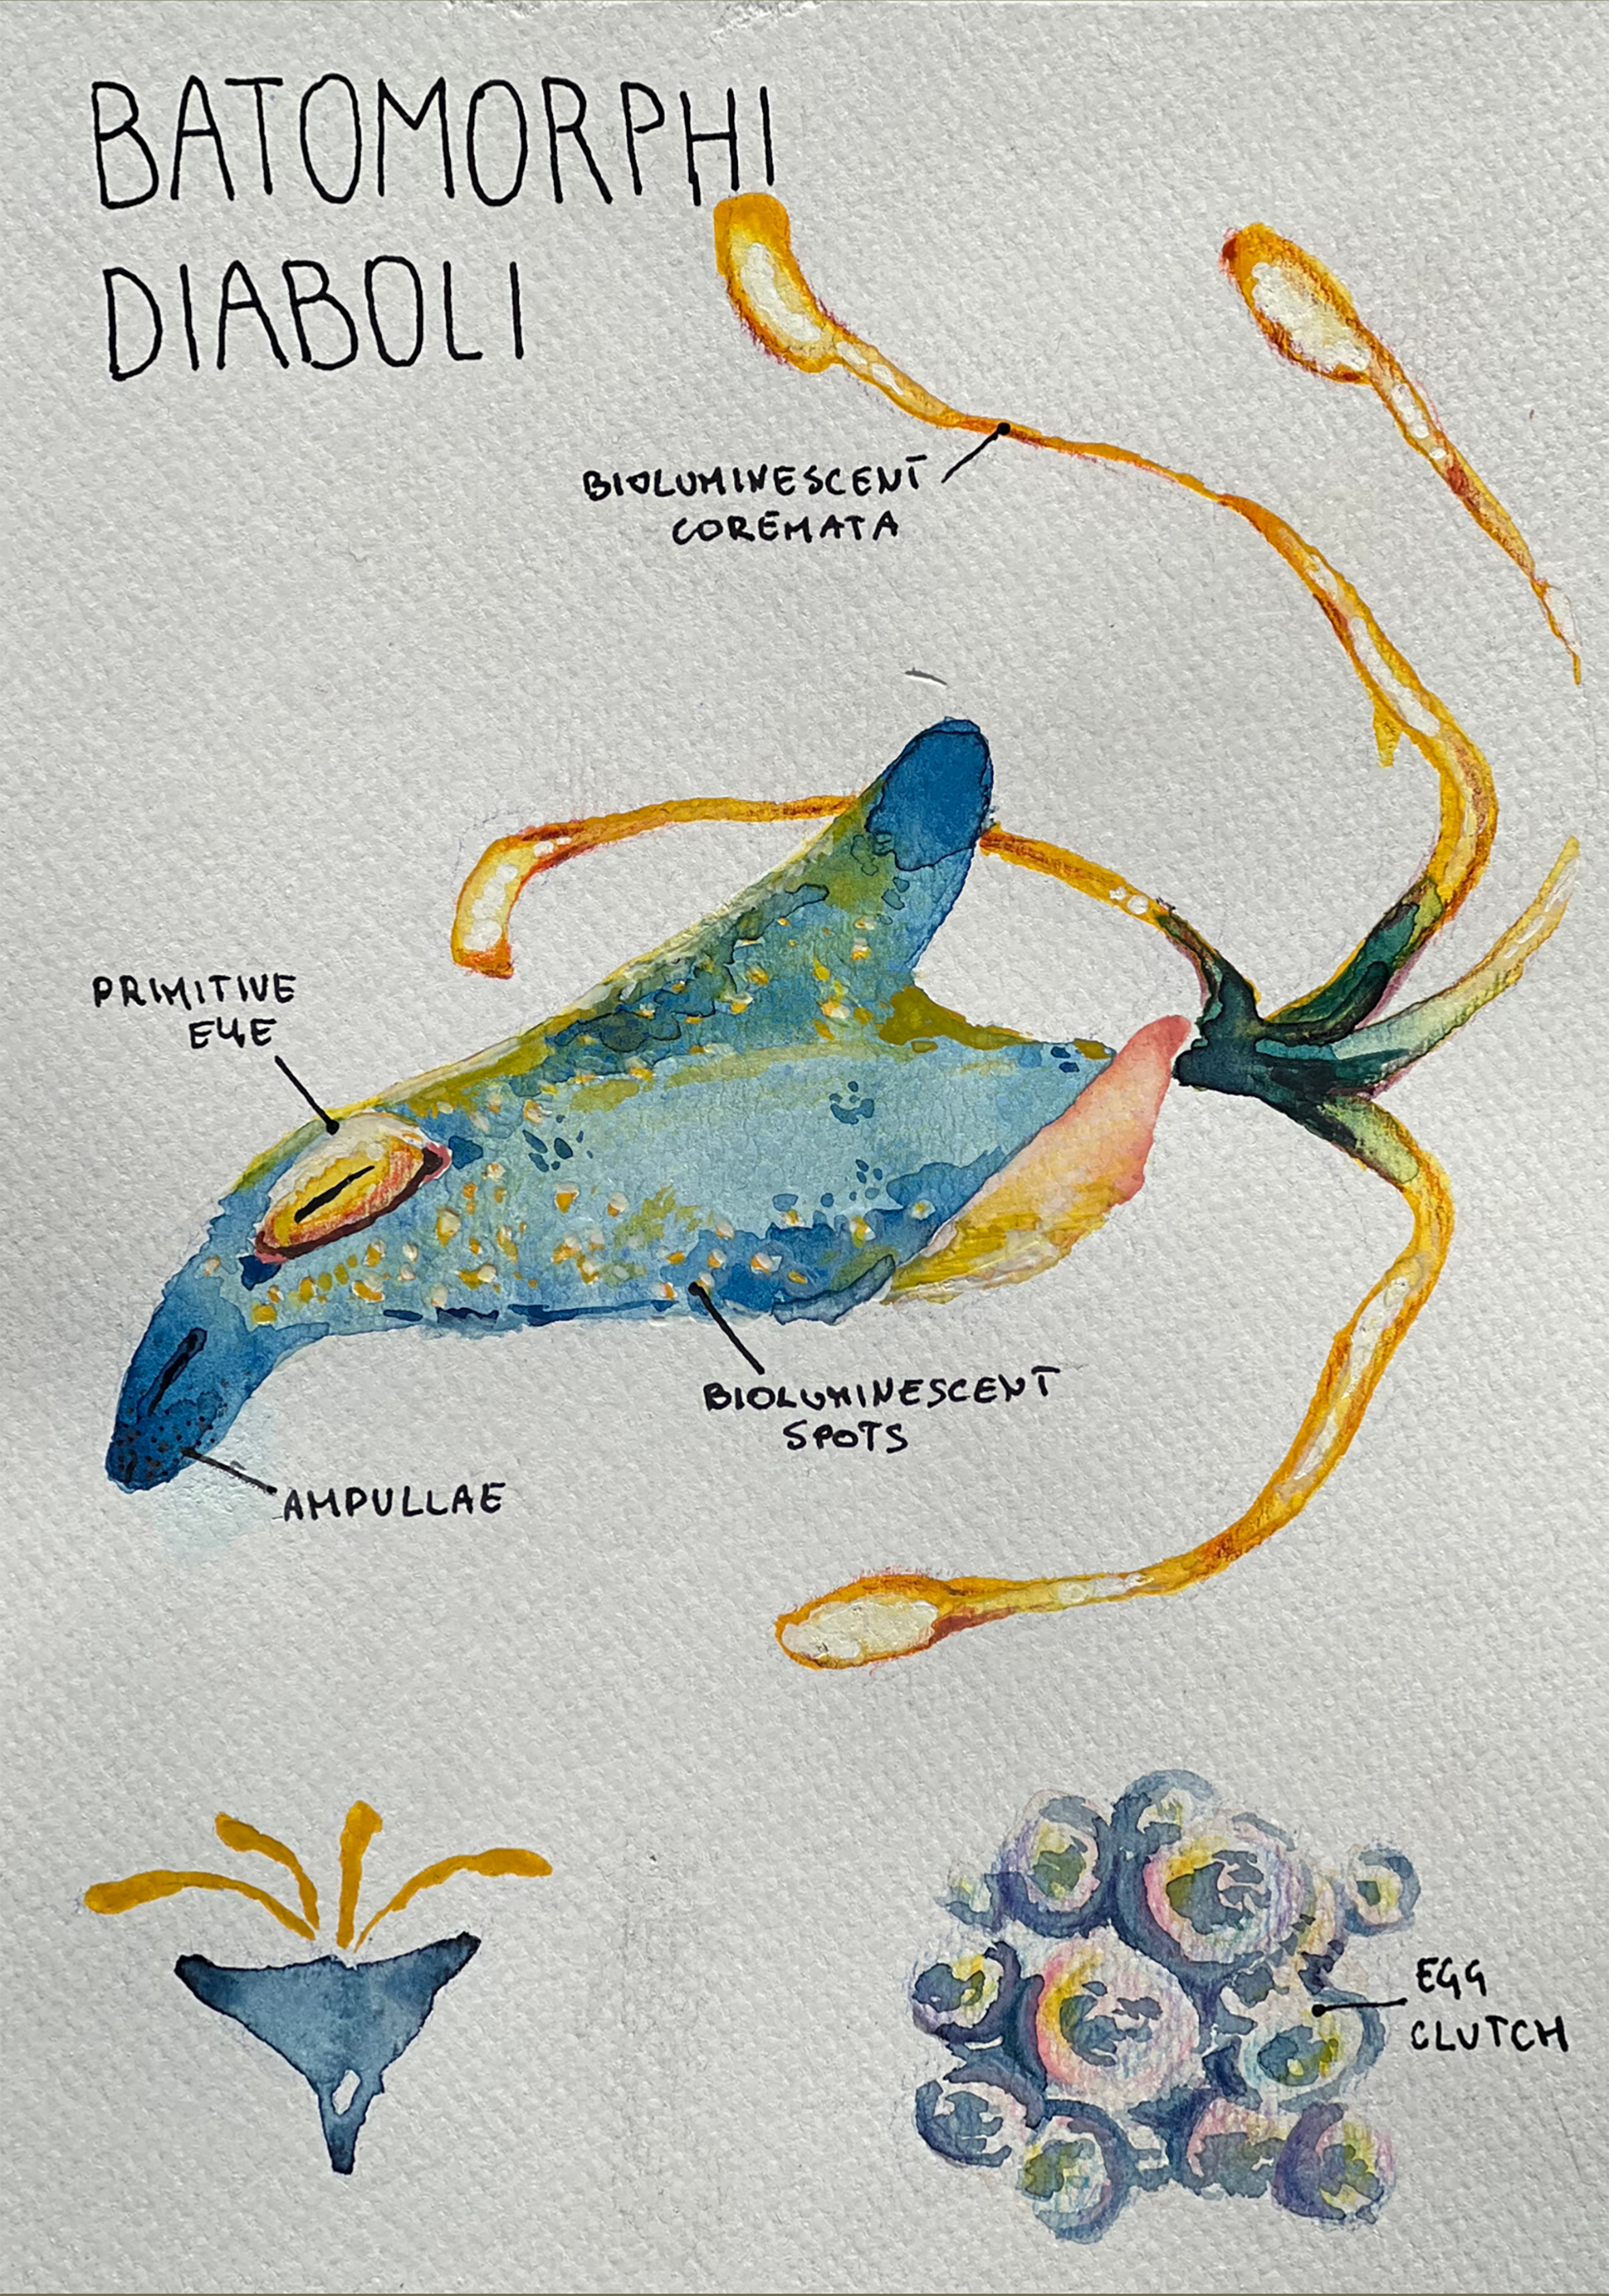 BATOMORPHI
DIABOLI
BIOLUMINESCENT
COREMATA
PRIMITIVE
EYE
BIOLUMINESCENT
SPOTS
AMPULLAE
EGG
CLUTCH